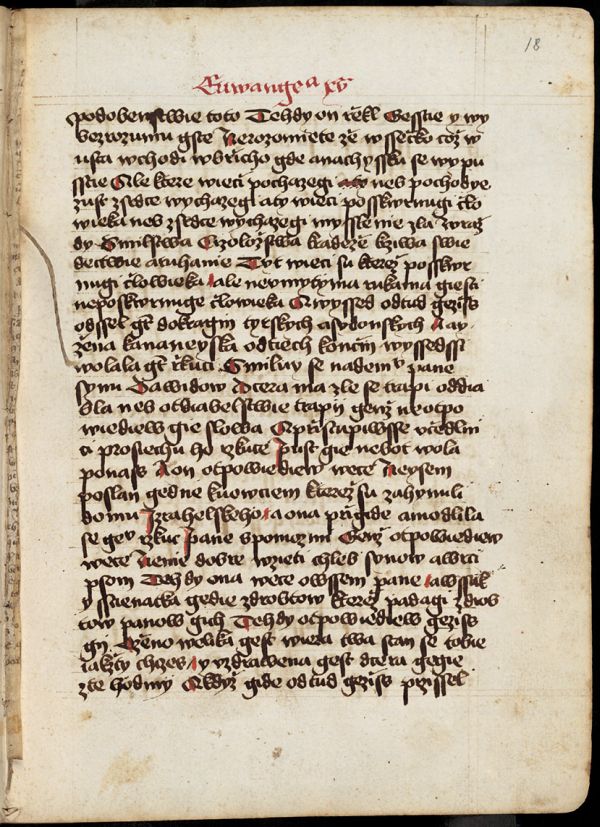 18
Euwangea xv
podobenstwie toto Tehdy on rzekl Gesstie y wy
bezrozumu gste Nerozomiete ze wssecko coz w
usta wchodi wbrzicho gde a nachysska se wypu
sstie Ale ktere wieci pochazegi nes pochodye
z ust z srdce wychazegi a ty wieci posskwrnugi clo
wieka nes z srdce wychazegi myssle nie zla wraz
dy Smilstwa Czolozstwa kradeze krziwa swie
dectwie a ruhanie Tyt wieci su kterez posskwr
nugi czlowieka ale neumytyma rukama giesti
neposkwrnuge czlowieka A wyssed odtud gezis
odssel gt do kragin tyrskych a sydonskych A ay
zena kananeyska od tiech koncin wyssedssi
wolala gt rzkuci Smiluy se nademu pane
synu Dawidow Dcera ma zle se trapi od dia
bla nes ot diabelstwie trapi genz ne otpo
wiediew gie slowa A przistupiwsse uczedlni
ci prosiechu ho rzkuce Pust gie nebot wola
po nass A on otpowiediew wece Neysem
poslan gedne kuowciem kterez su zahynuli
domu Izrahelskeho A ona przigide a modlila
se gey rzkuc Pane spomoz mi Genz otpowiediew
wece Nenie dobre wzieti chleb synow a wrci
psom Tehdy ona wece owssem pane a wssak
y sscienatka gedie z drobtow kterez padagi z stos
tow panow gich Tehdy otpowiediew geziss
gi Czeno welika gest wiera twa stan se tobie
iakzty chces A y uzdrawena gest dcera gegie
z te hodiny A kdyz gide odtud geziss przissel